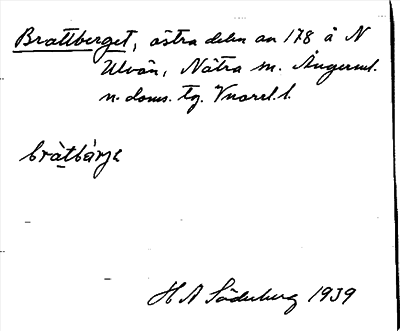 Brattberget, östra delen av 178 å N
Ulvön, Nätra sn. Ångerml.
n. doms. tg. V
bràtbárjɛ
H A Söderberg 1939